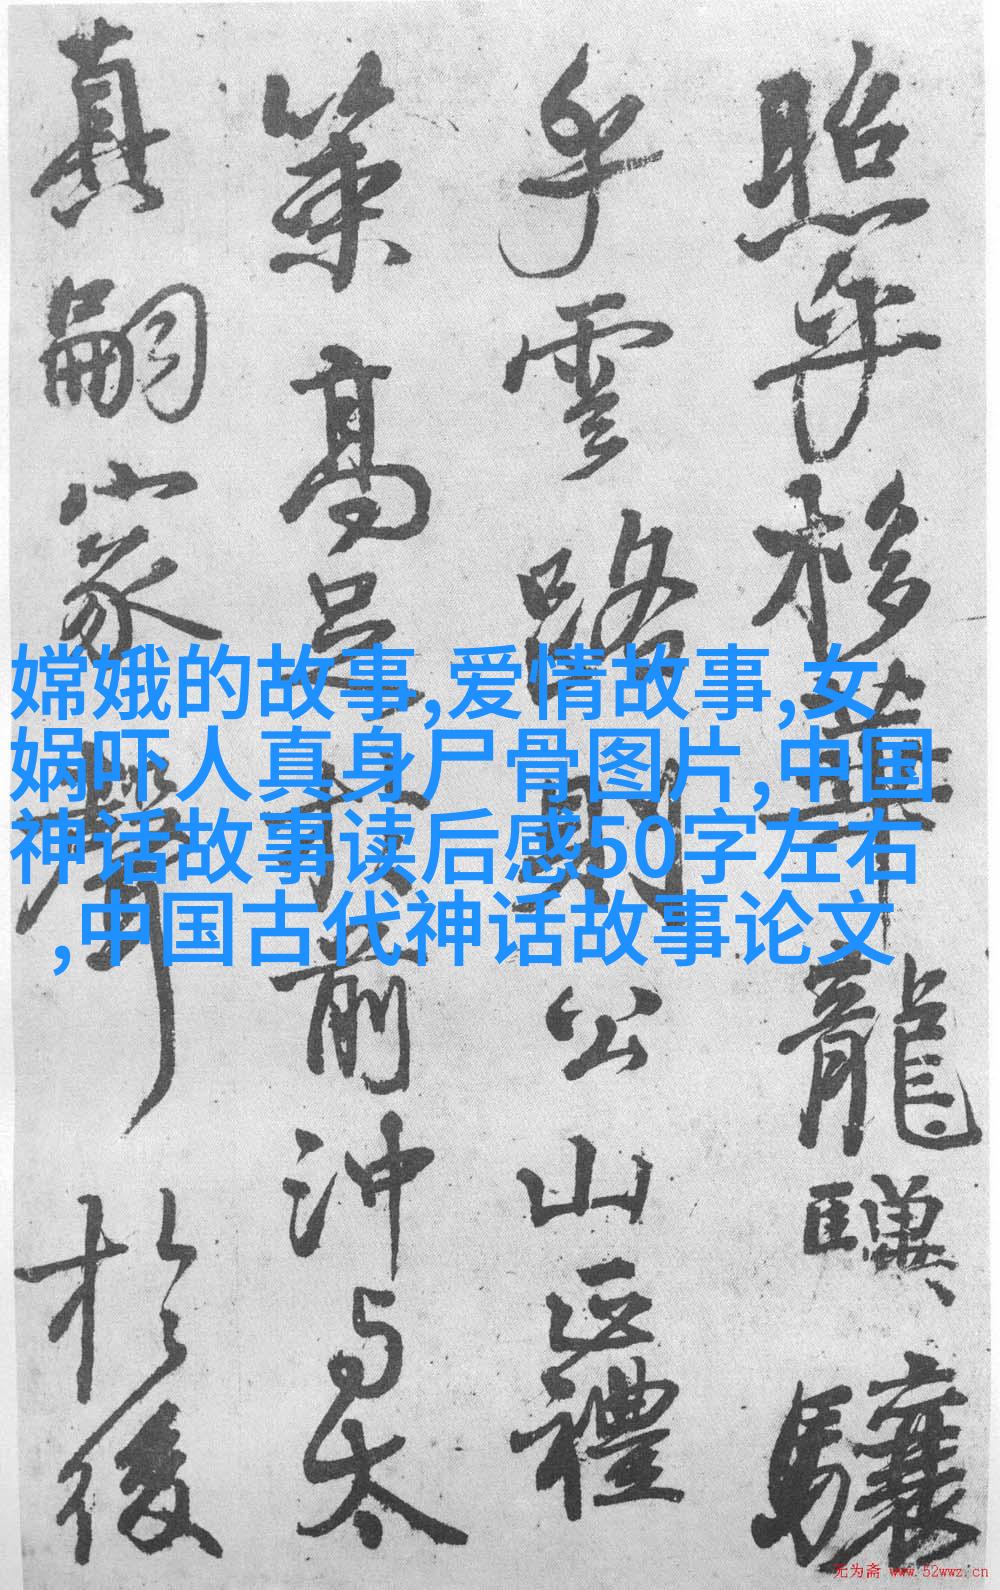 照乎移華龍驥驤
乎雲路則公山正禮
策高足於前沖与太
真嗣家聲於後
嫦娥的故事,爱情故事,女
娲吓人真身尸骨图片,中国
神话故事读后感50字左右
,中国古代神话故事论文
无为斋 www.52wwz.cn